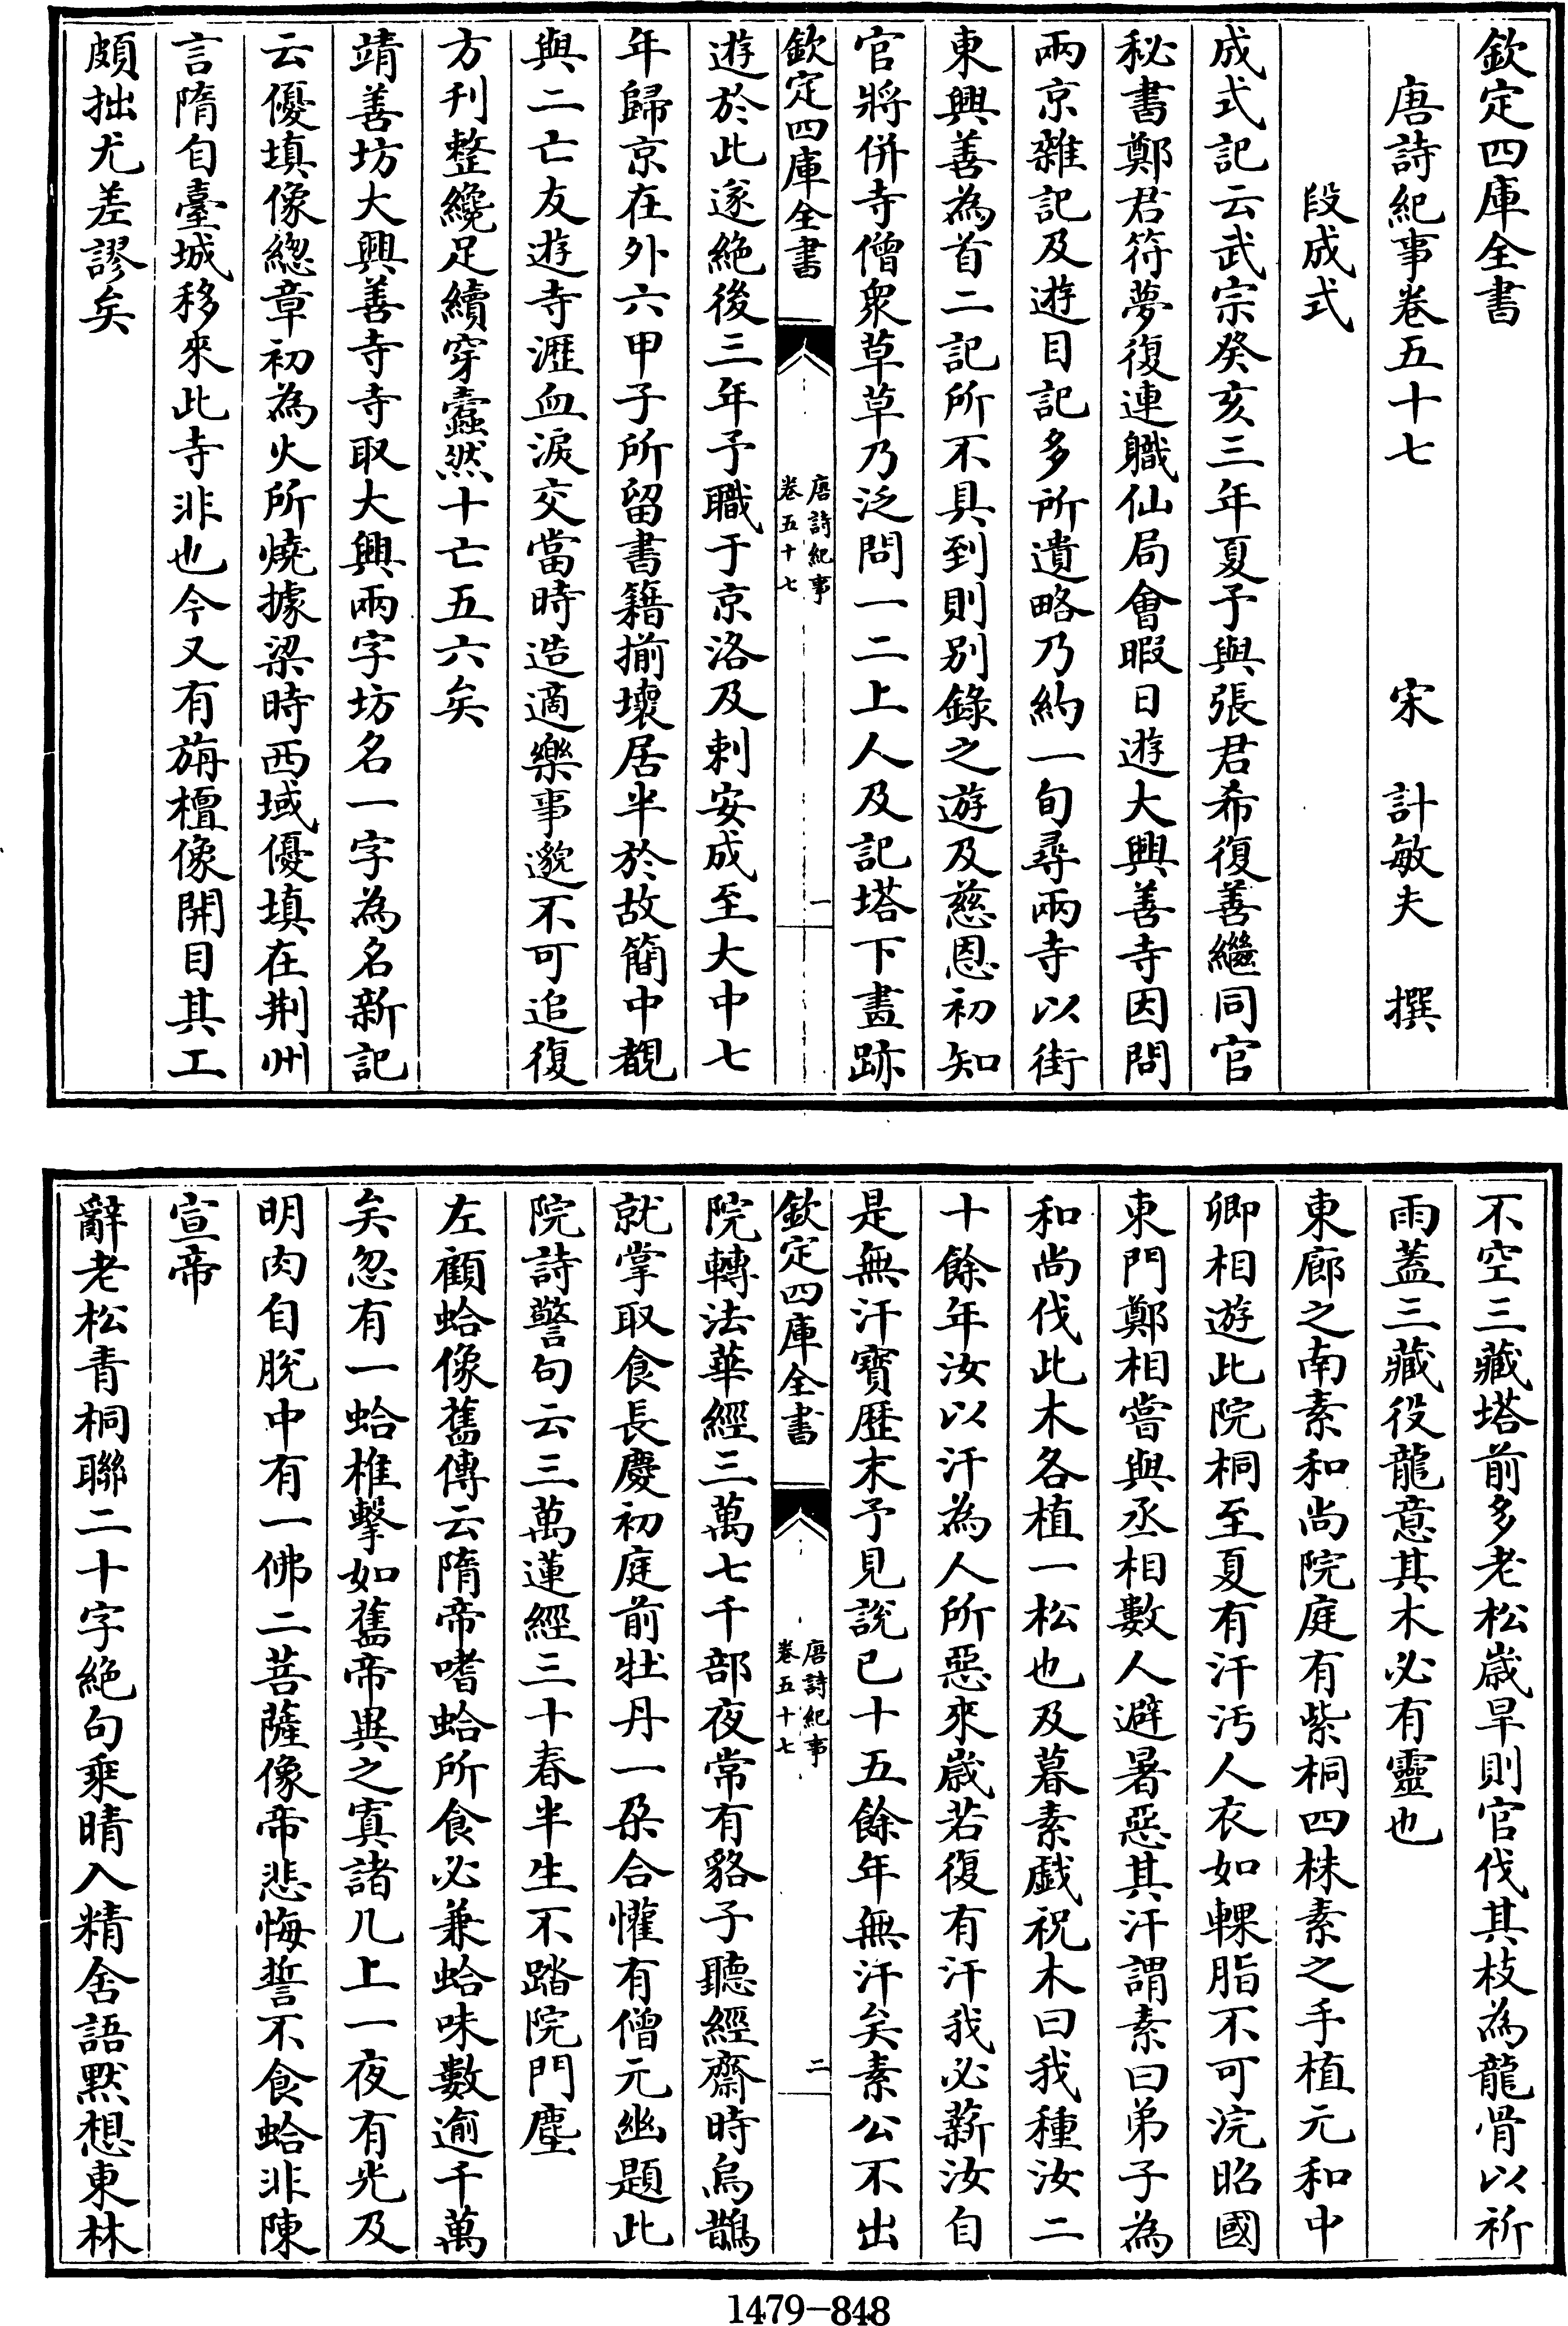 欽定四庫全書
唐詩紀事卷五十七
宋 計敏夫 撰
段成式
成式記云武宗癸亥三年夏予與張君希復善繼同官
秘書鄭君符夢復連職仙局會暇日遊大興善寺因問
兩京雜記及遊目記多所遺略乃約一旬尋兩寺以街
東興善為首二記所不具到則別錄之遊及慈恩初知
官將併寺僧衆草草乃泛問一二上人及記塔下畫跡
欽定四庫全書
唐詩紀事
卷五十七
一
遊於此遂絶後三年予職于京洛及刺安成至大中七
年歸京在外六甲子所留書籍揃壞居半於故簡中覩
與二亡友遊寺瀝血淚交當時造適樂事邈不可追復
方刋整纔足續穿蠹然十亡五六矣
靖善坊大興善寺寺取大興兩字坊名一字為名新記
云優填像緫章初為火所燒據梁時西域優填在荆州
言隋自臺城移來此寺非也今又有旃檀像開目其工
頗拙尤差謬矣
不空三藏塔前多老松歲旱則官伐其枝為龍骨以祈
雨蓋三藏役龍意其木必有靈也
東廊之南素和尚院庭有紫桐四株素之手植元和中
卿相遊此院桐至夏有汗汚人衣如輠脂不可浣昭國
東門鄭相嘗與丞相數人避暑惡其汗謂素曰弟子為
和尚伐此木各植一松也及暮素戯祝木曰我種汝二
十餘年汝以汗為人所惡來歲若復有汗我必薪汝自
是無汗寶歴末予見說已十五餘年無汗矣素公不出
欽定四庫全書
唐詩紀事
卷五十七
二
院轉法華經三萬七千部夜常有貉子聽經齋時烏鵲
就掌取食長慶初庭前牡丹一朶合懽有僧元幽題此
院詩警句云三萬蓮經三十春半生不踏院門塵
左顧蛤像舊傳云隋帝嗜蛤所食必兼蛤味數逾千萬
矣忽有一蛤椎擊如舊帝異之寘諸几上一夜有光及
明肉自脫中有一佛二菩薩像帝悲悔誓不食蛤非陳
宣帝
辭老松青桐聯二十字絶句乘晴入精舍語默想東林
1479-848